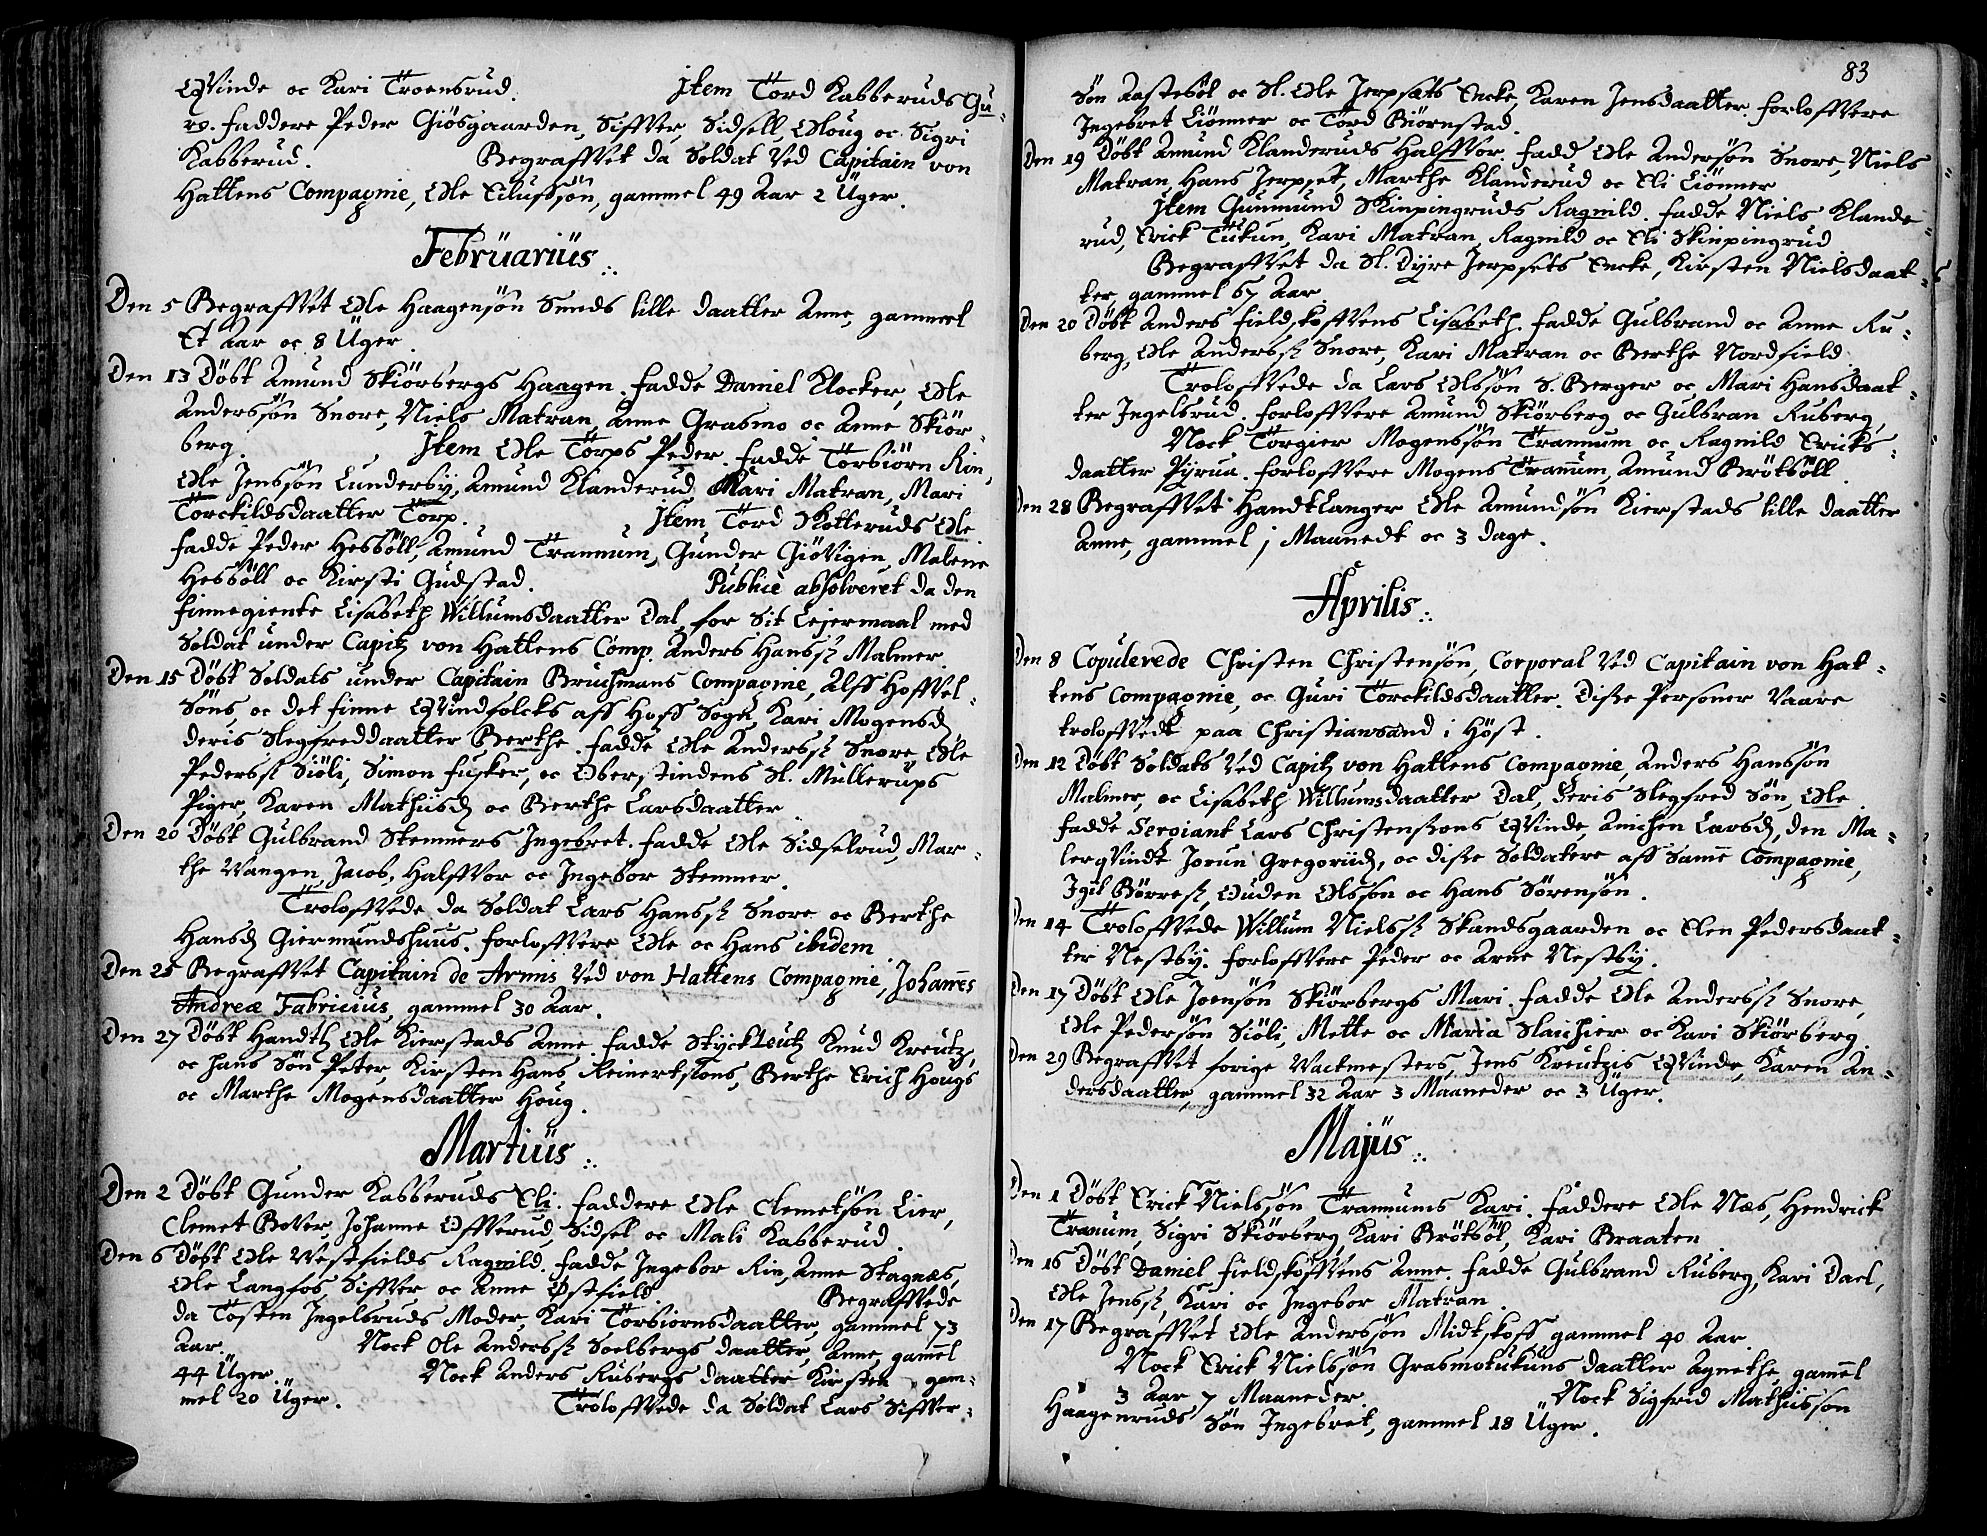 Qvinde oc Kari Troensrud. Jtem Tord Kabberuds Gu-
ro. Faddere Peder Giösgaarden, Siffver, Sidsell, Oloug oc Sigri
Kabberud. Begraffvet da Soldat ved Capitain von
Hattens Compagnie, Ole Eilufsön, gammel 49 Aar 2 Uger.
Februarius
Den 5 Begraffvet Ole Haagensön Sunds lille daatter Anne, gammel
Et Aar oc 8 Uger.
Den 13 Döbt Amund Skiörbergs Haagen. Fadde Daniel Klocker, Ole
Anderssön Snore, Niels Matran, Anne Grasmo oc Anne Skiör-
berg. Jtem Ole Törps Peder. Fadde Törbiörn Rin,
Ole Jenssön Lundersby, Amund Klanderud, Mari Matran, Mari
Törckildsdaatter Törp. Jtem Tord Kotteruds Ole
Fadde Peder Hesböll, Amund Trannum, Gunder Giövigen, Malene
Hesböll oc Kirsti Gudstad. Publicè absolveret da den
Finnegiente Lisabeth Willumsdaatter Dal for Sit Lejermaal med
Soldat under Capit von Hattens Comp. Anders Hanss Malmer.
Den 15 Döbt Soldats under Capitain Bruchmans Compagnie, Alff Hoffvel-
Söns, oc det finne Qvindfolcks aff Hoff Sogn, Kari Mogensd
deris Slegfreddaatter Berthe. Fadde Ole Anderss Snore, Ole
Pederss Siöli, Simon fusker, oc Oberstindens Sl. Müllerups
Piger, Karen Mathiisd oc Berthe Larsdaatter
Den 20 Döbt Gulbrand Stemners Ingebret. Fadde Ole Sidselrud, Mar-
the Vangen, Jacob, Halffvor oc Ingebor Stemner.
Troloffvede da Soldat Lars Hanss Snore oc Berthe
Hansd Giermundshuus. Forloffvere Ole oc Hans ibidem
Den 25 Begraffvet Capitain de Armis ved von Hattens Compagnie, Johannes
Andreæ Fabricius, gammel 30 Aar.
Den 27 Döbt Handtl Ole Kierstads Anne. Fadde Stÿckleut Knud Kreutz,
oc hans Sön Peter, Kirsten Hans Reinertsons, Berthe Erich Hougs
oc Marthe Mogensdaatter Houg.
Martius
Den 2 Döbt Gunder Kabberuds Eli. Faddere Ole Clemetsön Lier,
Clemet Bover, Johanne Offverud, Sidsel oc Mali Kabberud.
Den 6 Döbt Ole Vestfields Ragnild. Fadde Ingebor Rin, Anne Stagnæs,
Ole Langfos, Siffver oc Anne Östfield. Begraffvede
da Tosten Ingelsruds Moder, Kari Torbiornsdaatter, gammel 73
Aar. Nock Ole Anderss Soelbergs daatter, Anne gammel
44 Uger. Nock Anders Rubergs daatter Kirsten gam-
mel 20 Uger. Troloffvede da Soldat Lars Siffver-
83
Sön Aasteböl oc Sl. Ole Jerpsets Encke, Karen Jensdaatter. Forloffvere
Ingebret Liönner oc Tord Biörnstad.
Den 19 Döbt Amund Klanderuds Halffvor. Fadd Ole Andersön Snore, Niels
Matran, Hans Jerpset, Marthe Klanderud oc Eli Liönner
Jtem Gunmund Skinpingruds Ragnild. Fadde Niels Klande-
rud, Erick Tükun, Kari Matran, Ragnild oc Eli Skinpingrud
Begraffvet da Sl. Dÿre Jerpsets Encke, Kirsten Nielsdaat-
ter, gammel 67 Aar
Den 20 Döbt Anders Fieldskoffvens Lisabeth. Fadde Gulbrand oc Anne Ru-
berg, Ole Anderss Snore, Kari Matran oc Berthe Nordfield
Troloffvede da Lars Olssön S. Berger oc Mari Hansdaat-
ter Ingelsrud. Forloffvere Amund Skiörberg oc Gulbran Ruberg
Nock Törgier Mogenssön Trannum oc Ragnild Ericks-
daatter Pÿrua. Forloffvere Mogens Tranum, Amund Brötböll.
Den 28 Begraffvet Handtlanger Ole Amundsön Kierstads lille daatter
Anne, gammel j Maanedt oc 3 dage.
Aprilis
Den 8 Copulerede Christen Christensön, Corporal ved Capitain von Hat-
tens Compagnie, oc Guri Törckildsdaatter. Disse Personer vaare
troloffvedt paa Christiansand i Höst.
Den 12 Döbt Soldats ved Capit von Hattens Compagnie, Anders Hanssön
Malmer, oc Lisabeth Willumsdaatter Dal, Deris Slegfred Sön, Ole.
Fadde Sergiant Lars Christensons Qvinde, Anichen Larsd, den Ma-
lerqvindt Jorun Gregoriid, oc disse Soldatere aff Samme Compagnie,
Igil Börres, Ouden Olsson oc Hans Sörensön.
Den 14 Troloffvede Willum Nielss Skandsgaarden oc Elen Pedersdaat-
ter Nestby. Forloffvere Peder oc Arne Nestby.
Den 17 Döbt Ole Joensön Skiörbergs Mari. Fadde Ole Anderss Snore,
Ole Pedersön Siöli, Mette oc Maria Slaichier oc Kari Skiörberg.
Den 29 Begraffvet forige Vactmesters, Jens Kreutzis Qvinde, Karen An-
dersdaatter, gammel 32 Aar 3 Maaneder oc 3 Uger.
Majus
Den 1 Döbt Erick Nielssön Trannums Kari. Faddere Ole Næs, Hendrick
Tranum, Sigri Skiörberg, Kari Brötböl, Kari Braaten
Den 16 Döbt Daniel Fieldskoffvens Anne. Fadde Gulbrand Ruberg, Kari Dael,
Ole Jenss, Kari oc Ingebor Matran.
Den 17 Begraffvet Ole Anderssön Midtskoff gammel 40 Aar
Nock Erick Nielssön Grasmotukuns daatter Agnethe, gammel
3 Aar 7 Maaneder. Nock Sigfrid Mathisson
Haagenruds Sön Ingebret, gammel 18 Uger.